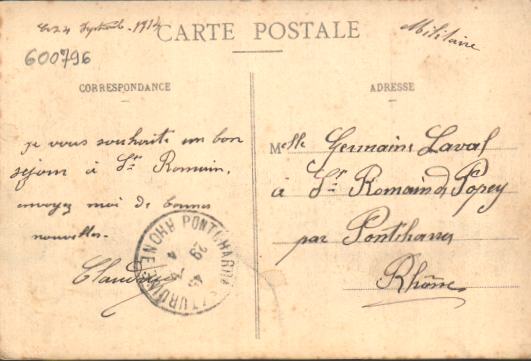 24 1914
CARTE POSTALE
Militaire
600796
CORRESPONDANCE
ADRESSE
je vous souhaite un bon
séjour à St Romain,
envoyez moi de bonnes
nouvelles.
Melle Germaine Laval
à St Romain de Popey
par Pontcharra
Rhône
PONTCHARRA S/TURDINE RHÔNE
29